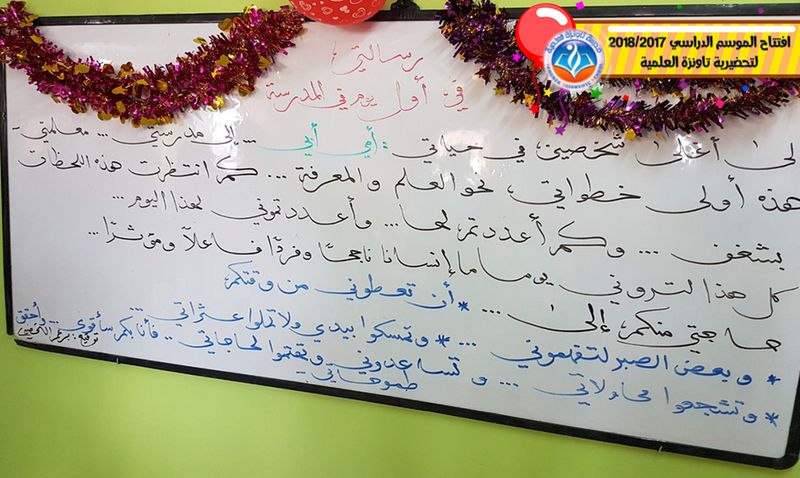 افتتاح الموسم الدراسي 2018/2017
لتحضيرية تاونزة العلمية
رسالتي:
في أول يوم في المدرسة
لى أغلى شخصين في حياتي: أمي أبي ... إلى مدرستي ... معلمتي -
هذه أولى خطواتي نحو العلم والمعرفة ... كم انتظرت هذه اللحظات
بشغف ... وكم أعددتم لها ... وأعددتموني لهذا اليوم ...
كل هذا لتروني يوما ما إنسانا ناجحًا وفردًا فاعلاً ومؤثرًا ...
حاجتي منكم إلى ... * أن تعطوني من وقتكم
* وبعض الصبر لتفهموني ... * وتمسكوا بيدي ولا تملوا عثراتي ...
* وتشجعوا محاولاتي ... وتساعدوني وتهتموا لحاجاتي .. فأنا بكم سأقوى ... وأحقق
طموحاتي
توقيع: